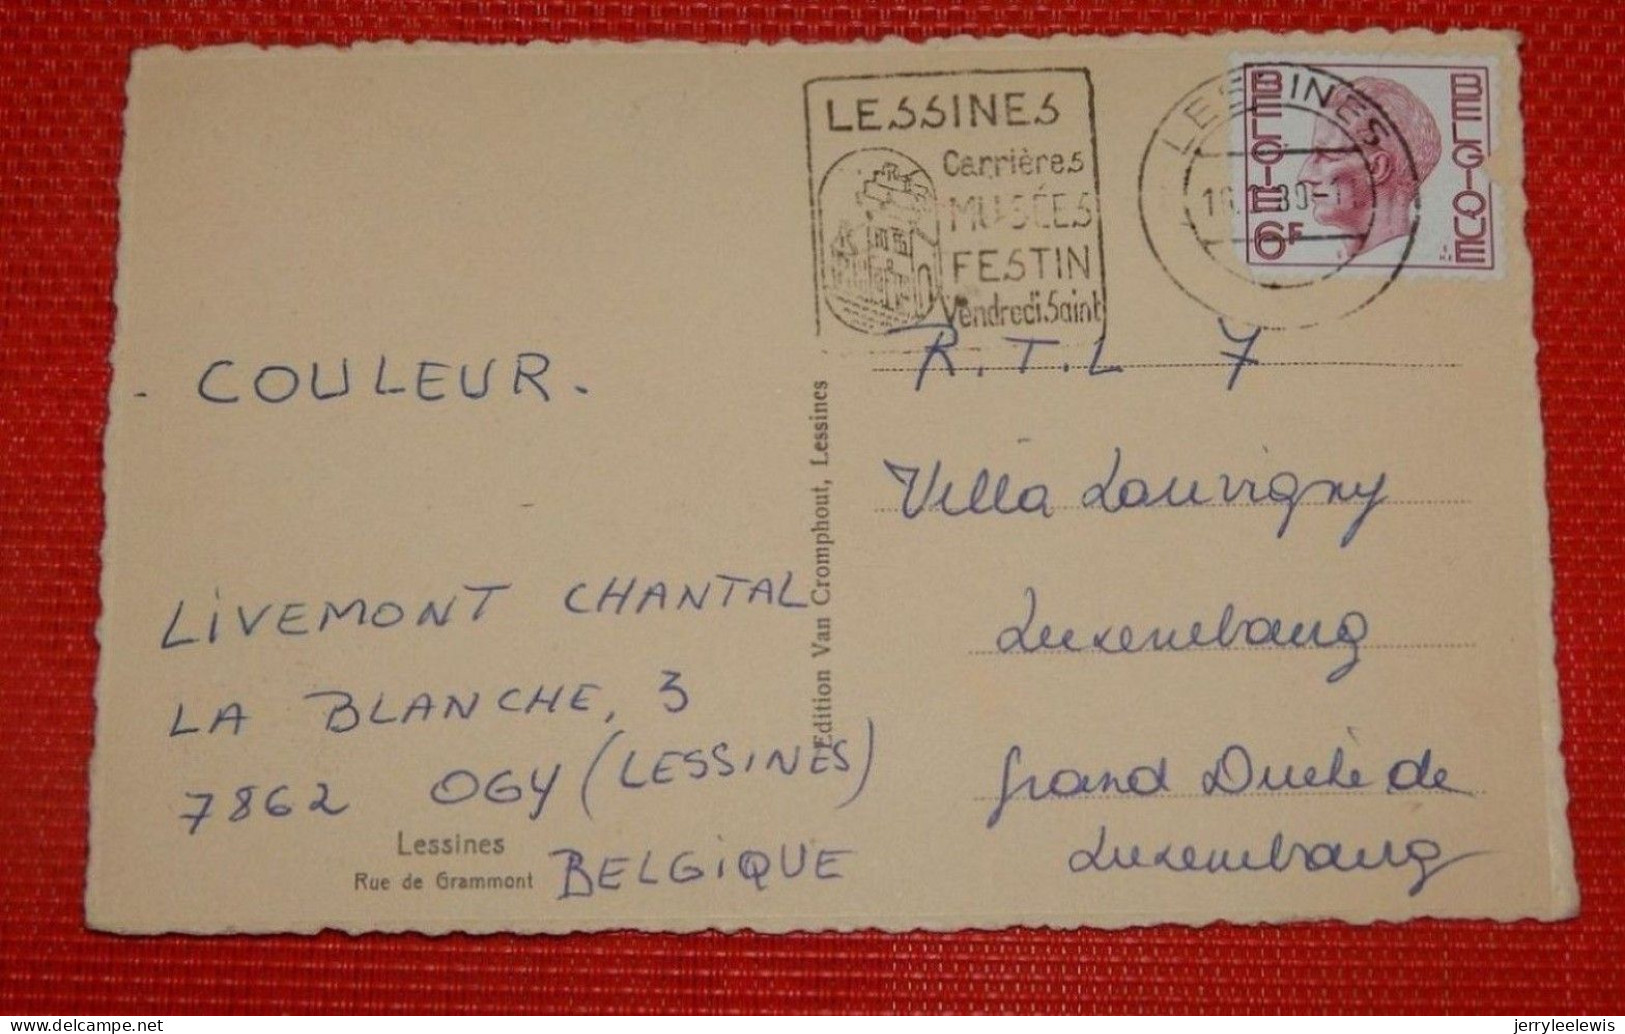 LESSINES
Carrières
MUSÉES
FESTIN
Vendredi Saint
LESSINES
BELGIE
BELGIQUE
6F
- COULEUR.
LIVEMONT CHANTAL
LA BLANCHE, 3
7862 OGY (LESSINES)
BELGIQUE
Lessines
Rue de Grammont
Edition Van Cromphout, Lessines
R.T.L 7
Villa Louvigny
Luxembourg
Grand Duché de
Luxembourg
jerryleelewis